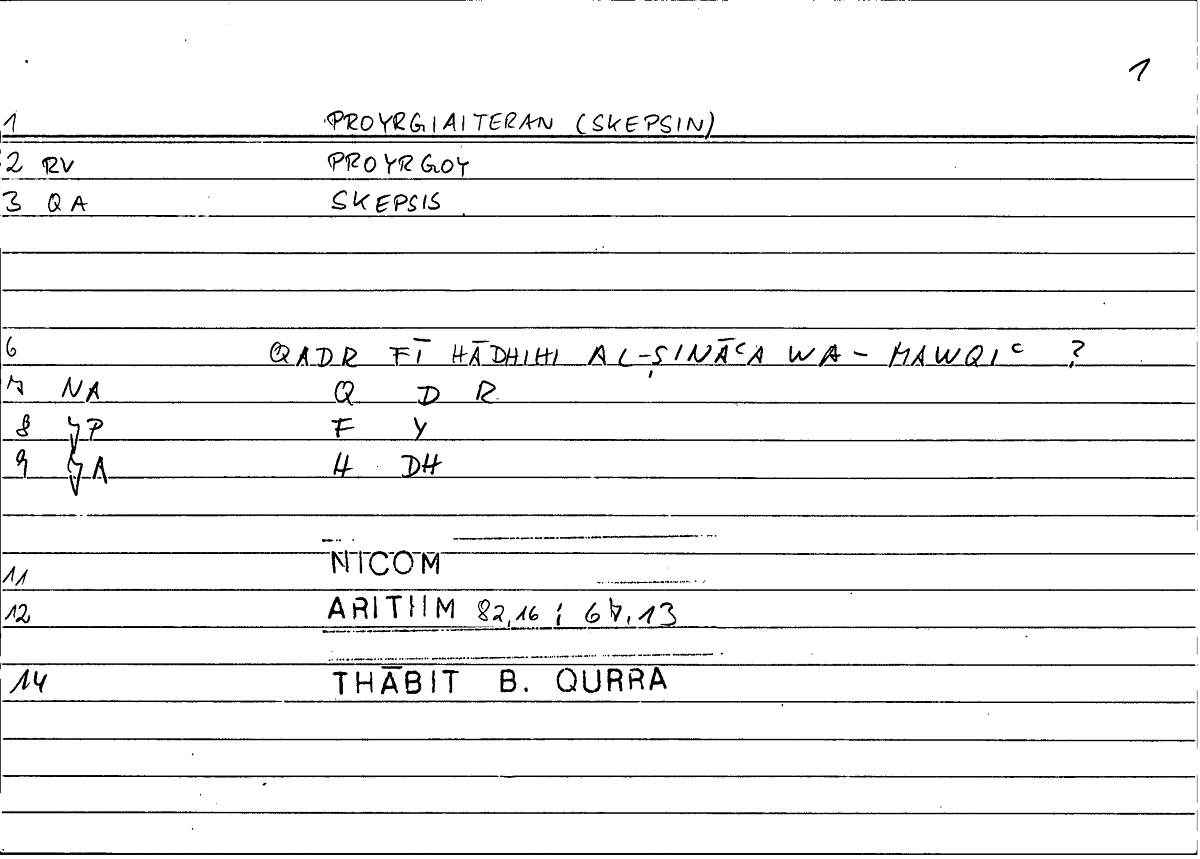 1
1 PROYRGIAITERAN (SKEPSIN)
2 RV PROYRGOY
3 QA SKEPSIS
6 QADR FĪ HĀDHIHI AL-ṢINĀʿA WA-MAWQIʿ ?
7 NA Q D R
8 P F Y
9 A H DH
11 NICOM
12 ARITHM 82,16 ; 67,13
14 THĀBIT B. QURRA